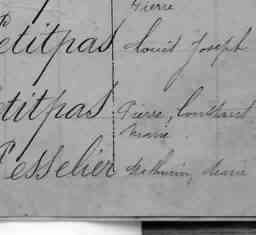 Pierre
Petitpas Louis Joseph
Petitpas Pierre, Constant
Marie
Tesselier Mathurin, Marie